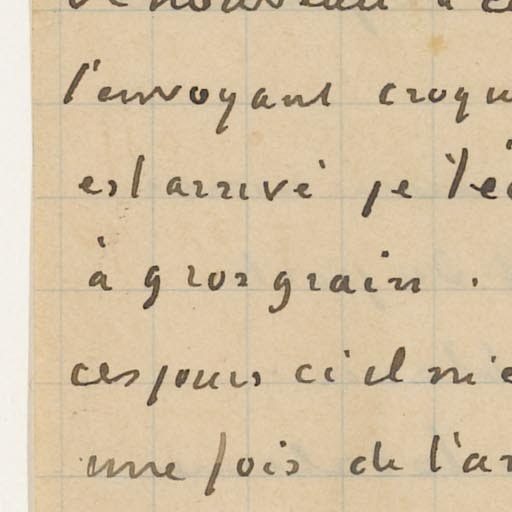 l'envoyant croqu
est arrivé je t'é
à gros grain .
ces jours ci il m'e
une fois de l'ar